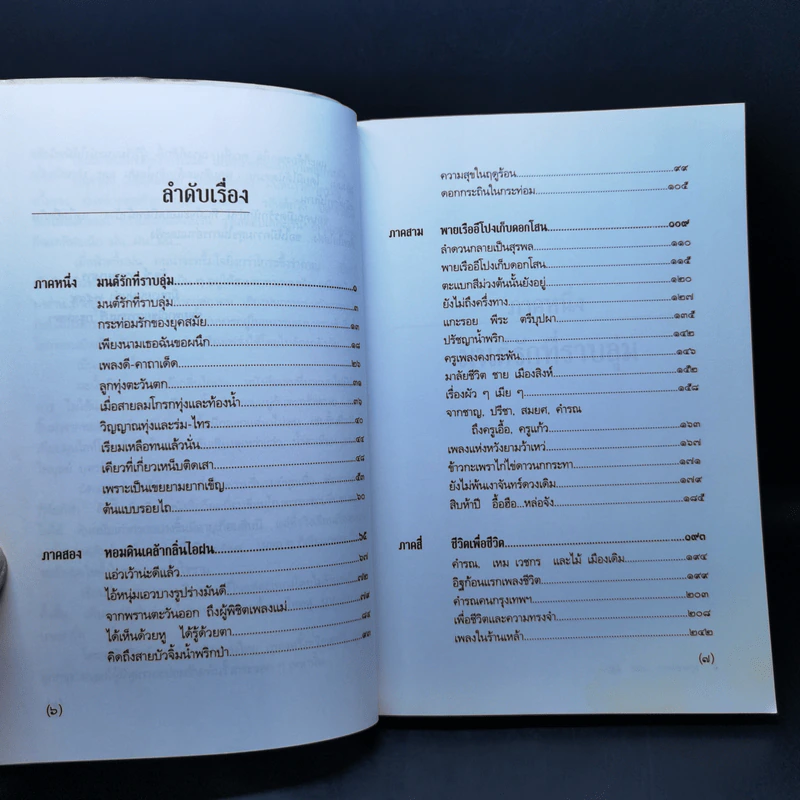 ลำดับเรื่อง
ภาคหนึ่ง มนต์รักที่ราบลุ่ม ๑
มนต์รักที่ราบลุ่ม ๓
กระท่อมรักของยุคสมัย ๑๓
เพียงนามเธอฉันขอผนึก ๑๘
เพลงดี-คาถาเด็ด ๒๖
ลูกทุ่งตะวันตก ๓๑
เมื่อสายลมโกรกทุ่งและท้องน้ำ ๓๖
วิญญาณทุ่งและร่ม-ไทร ๔๐
เรียมเหลือทนแล้วนั่น ๔๔
เคียวที่เกี่ยวเหน็บติดเสา ๔๘
เพราะเป็นเชยยามยากเข็ญ ๕๓
ต้นแบบรอยไถ ๖๐
ภาคสอง หอมดินเคล้ากลิ่นไอฝน ๖๕
แอ่วเว้าน่ะดีแล้ว ๖๗
ไอ้หนุ่มเอวบางรูปร่างมันดี ๗๒
จากพรานตะวันออก ถึงผู้พิชิตเพลงแม่ ๗๘
ได้เห็นด้วยหู ได้รู้ด้วยตา ๘๔
คิดถึงสายบัวจิ้มน้ำพริกป่า ๙๐
(๖)
ความสุขในฤดูร้อน ๙๙
ดอกกระถินในกระท่อม ๑๐๕
ภาคสาม พายเรืออีโปงเก็บดอกโสน ๑๐๙
ลำดวนกลายเป็นสุรพล ๑๑๐
พายเรืออีโปงเก็บดอกโสน ๑๑๕
ตะแบกสีม่วงต้นนั้นยังอยู่ ๑๒๐
ยังไม่ถึงครึ่งทาง ๑๒๗
แกะรอย พีระ ตรีบุปผา ๑๓๕
ปรัชญาน้ำพริก ๑๔๒
ครูเพลงคงกระพัน ๑๔๖
มาลัยชีวิต ชาย เมืองสิงห์ ๑๕๒
เรื่องผัว ๆ เมีย ๆ ๑๕๘
จากชาญ, ปรีชา, สมยศ, คำรณ
ถึงครูเอื้อ, ครูแก้ว ๑๖๓
เพลงแห่งหวังยามว้าเหว่ ๑๖๗
ข้าวกะเพราไก่ไข่ดาวนกกระทา ๑๗๑
ยังไม่พ้นเงาจันทร์ดวงเดิม ๑๗๙
สิบห้าปี อื้อฮือ...หล่อจัง ๑๘๕
ภาคสี่ ชีวิตเพื่อชีวิต ๑๙๓
คำรณ, เหม เวชกร และไม้ เมืองเดิม ๑๙๔
อิฐก้อนแรกเพลงชีวิต ๑๙๙
คำรณคนกรุงเทพฯ ๒๐๓
เพื่อชีวิตและความทรงจำ ๒๐๘
เพลงในร้านเหล้า ๒๔๒
(๗)